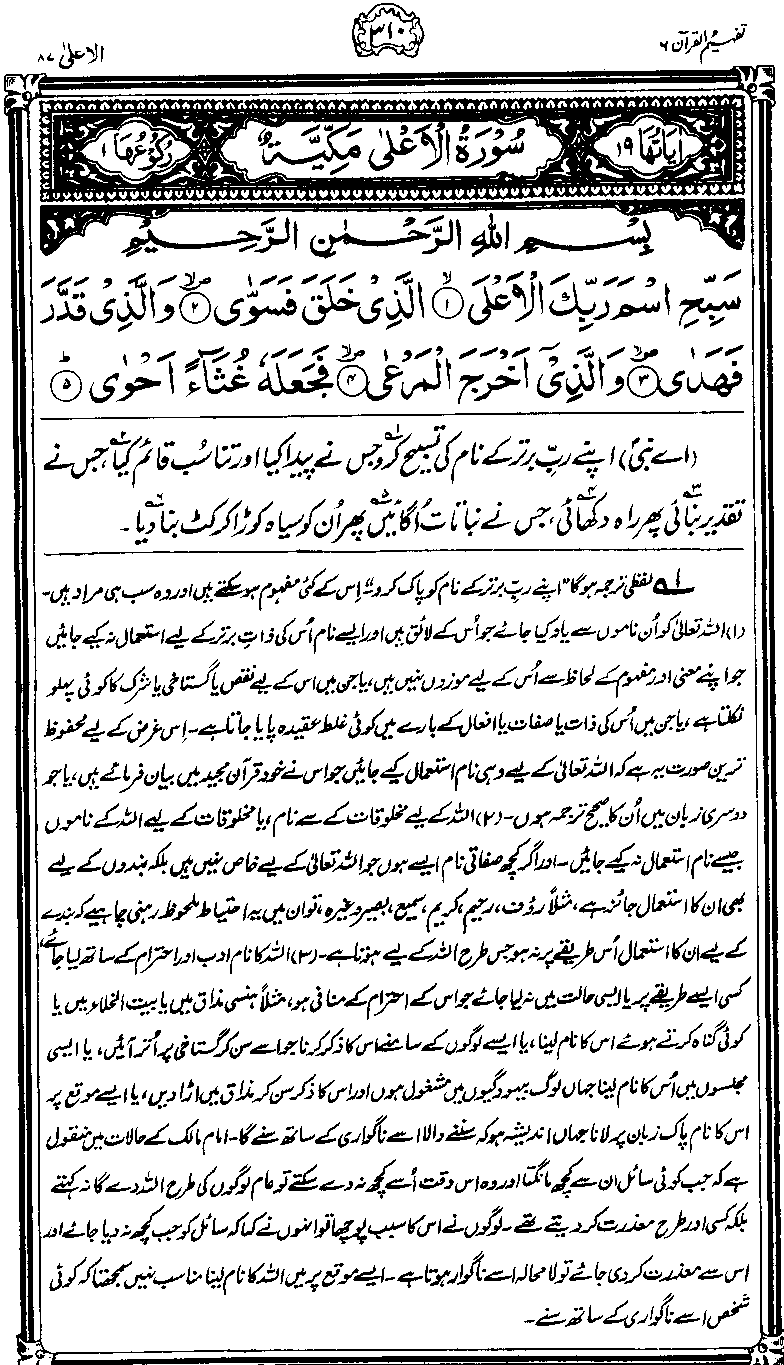 تفہیم القرآن ۶
۳۱۰
الاعلیٰ ۸۷
اٰيَاتُهَا ١٩
سُوْرَةُ الْاَعْلٰى مَكِّيَّةٌ
رُكُوْعُهَا ١
بِسْمِ اللهِ الرَّحْمٰنِ الرَّحِيْمِ
سَبِّحِ اسْمَ رَبِّكَ الْاَعْلَى ۙ﴿١﴾ الَّذِىْ خَلَقَ فَسَوّٰى ۪ۙ﴿٢﴾ وَالَّذِىْ قَدَّرَ
فَهَدٰى ۪ۙ﴿٣﴾ وَالَّذِىْۤ اَخْرَجَ الْمَرْعٰى ۪ۙ﴿٤﴾ فَجَعَلَهٗ غُثَآءً اَحْوٰى ؕ﴿٥﴾
(اے نبیؐ) اپنے ربِّ برتر کے نام کی تسبیح کرو۱ جس نے پیدا کیا اور تناسُب قائم کیا،۲ جس نے
تقدیر بنائی۳ پھر راہ دکھائی،۴ جس نے نباتات اُگائیں۵ پھر اُن کو سیاہ کوڑا کرکٹ بنا دیا۔۶
۱ لفظی ترجمہ ہوگا "اپنے ربِّ برتر کے نام کو پاک کرو"۔ اِس کے کئی مفہوم ہو سکتے ہیں اور وہ سب ہی مراد ہیں۔
(۱) اللہ تعالیٰ کو اُن ناموں سے یاد کیا جائے جو اُس کے لائق ہیں اور ایسے نام اُس کی ذاتِ برتر کے لیے استعمال نہ کیے جائیں
جو اپنے معنی اور مفہوم کے لحاظ سے اُس کے لیے موزوں نہیں ہیں، یا جن میں اس کے لیے نقص یا گستاخی یا شرک کا کوئی پہلو
نکلتا ہے، یا جن میں اُس کی ذات یا صفات یا افعال کے بارے میں کوئی غلط عقیدہ پایا جاتا ہے۔ اِس غرض کے لیے محفوظ
ترین صورت یہ ہے کہ اللہ تعالیٰ کے لیے وہی نام استعمال کیے جائیں جو اس نے خود قرآن مجید میں بیان فرمائے ہیں، یا جو
دوسری زبان میں اُن کا صحیح ترجمہ ہوں۔ (۲) اللہ کے لیے مخلوقات کے سے نام، یا مخلوقات کے لیے اللہ کے ناموں
جیسے نام استعمال نہ کیے جائیں۔ اور اگر کچھ صفاتی نام ایسے ہوں جو اللہ تعالیٰ کے لیے خاص نہیں ہیں بلکہ بندوں کے لیے
بھی ان کا استعمال جائز ہے، مثلاً رؤف، رحیم، کریم، سمیع، بصیر وغیرہ، تو ان میں یہ احتیاط ملحوظ رہنی چاہیے کہ بندے
کے لیے ان کا استعمال اُس طریقے پر نہ ہو جس طرح اللہ کے لیے ہوتا ہے۔ (۳) اللہ کا نام ادب اور احترام کے ساتھ لیا جائے،
کسی ایسے طریقے پر یا ایسی حالت میں نہ لیا جائے جو اس کے احترام کے منافی ہو، مثلاً ہنسی مذاق میں یا بیت الخلاء میں یا
کوئی گناہ کرتے ہوئے اس کا نام لینا، یا ایسے لوگوں کے سامنے اس کا ذکر کرنا جو اسے سن کر گستاخی پر اُتر آئیں، یا ایسی
مجلسوں میں اُس کا نام لینا جہاں لوگ بیہودگیوں میں مشغول ہوں اور اس کا ذکر سن کر مذاق میں اڑا دیں، یا ایسے موقع پر
اس کا نام پاک زبان پر لانا جہاں اندیشہ ہو کہ سننے والا اسے ناگواری کے ساتھ سنے گا۔ امام مالک کے حالات میں منقول
ہے کہ جب کوئی سائل ان سے کچھ مانگتا اور وہ اس وقت اُسے کچھ نہ دے سکتے تو عام لوگوں کی طرح اللہ دے گا نہ کہتے
بلکہ کسی اور طرح معذرت کر دیتے تھے۔ لوگوں نے اس کا سبب پوچھا تو انہوں نے کہا کہ سائل کو جب کچھ نہ دیا جائے اور
اس سے معذرت کر دی جائے تو لا محالہ اسے ناگوار ہوتا ہے۔ ایسے موقع پر میں اللہ کا نام لینا مناسب نہیں سمجھتا کہ کوئی
شخص اسے ناگواری کے ساتھ سنے۔